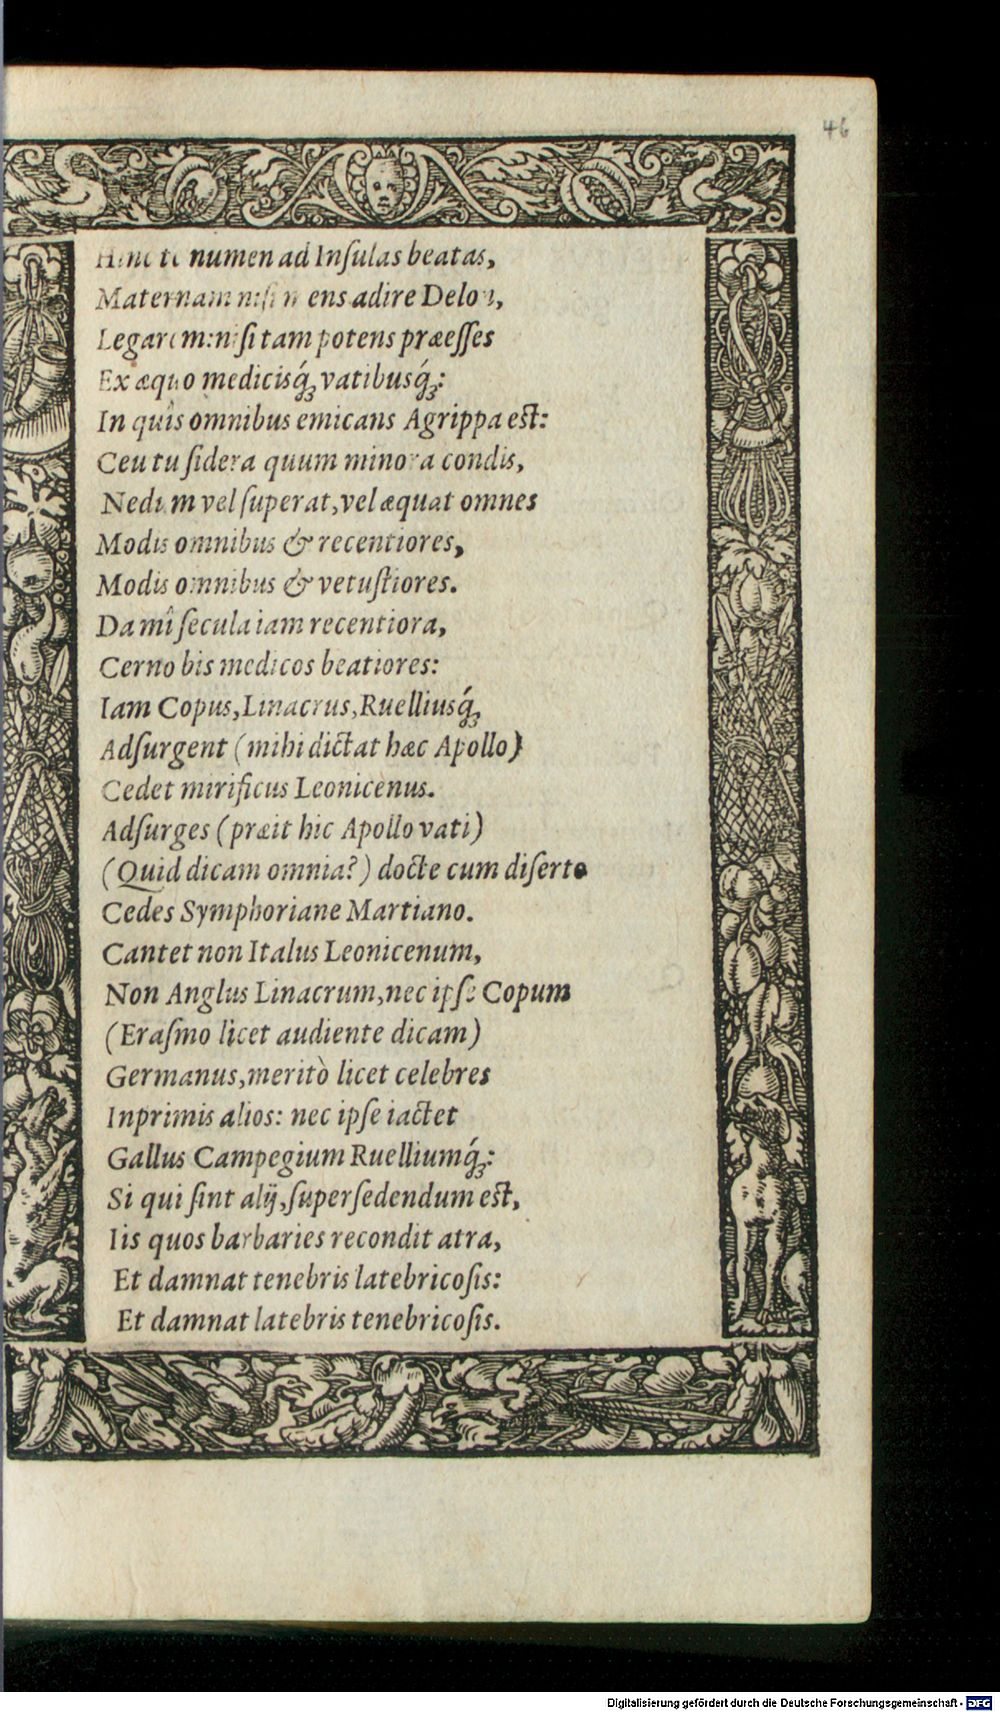 46
Hinc te numen ad Inſulas beatas,
Maternam niſi mens adire Delon,
Legarem: niſi tam potens præeſſes
Ex æquo medicisq́ꝫ vatibusq́ꝫ:
In quîs omnibus emicans Agrippa est:
Ceu tu ſidera quum minora condis,
Nedum vel ſuperat, vel æquat omnes
Modis omnibus & recentiores,
Modis omnibus & vetuſtiores.
Da mî ſecula iam recentiora,
Cerno bis medicos beatiores:
Iam Copus, Linacrus, Ruelliusq́ꝫ
Adſurgent (mihi dictat hæc Apollo)
Cedet mirificus Leonicenus.
Adſurges (præit hic Apollo vati)
(Quid dicam omnia?) docte cum diſerto
Cedes Symphoriane Martiano.
Cantet non Italus Leonicenum,
Non Anglus Linacrum, nec ipſe Copum
(Eraſmo licet audiente dicam)
Germanus, meritò licet celebres
Inprimis alios: nec ipſe iactet
Gallus Campegium Ruelliumq́ꝫ:
Si qui ſint alij, ſuperſedendum est,
Iis quos barbaries recondit atra,
Et damnat tenebris latebricoſis:
Et damnat latebris tenebricoſis.
Digitalisierung gefördert durch die Deutsche Forschungsgemeinschaft - DFG